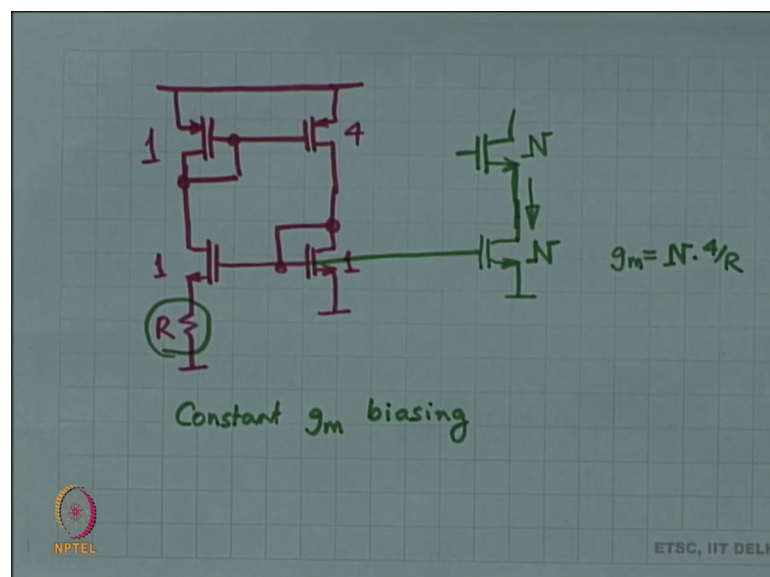 1
4
N
1
1
N
gm = N · 4/R
R
Constant gm biasing
NPTEL
ETSC, IIT DELH